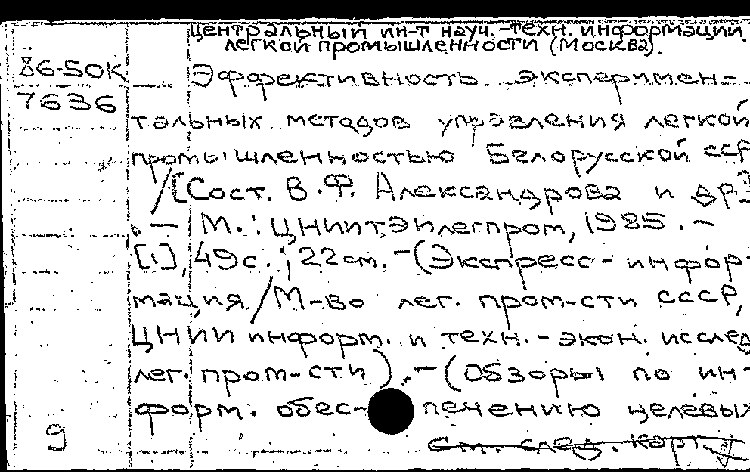 центральный ин-т науч.-техн. информации
легкой промышленности (Москва).
86-50К Эффективность эксперимен-
7636
тальных методов управления легкой
промышленностью Белорусской ССР
/ [Сост. В.Ф. Александрова и др.]
. – М.: ЦНИИТЭИлегпром, 1985. –
[1], 49 с.; 22 см. – (Экспресс-инфор-
мация / М-во лег. пром-сти СССР,
ЦНИИ информ. и техн.-экон. исслед.
лег. пром-сти). – (Обзоры по ин-
форм. обеспечению целевых
9 см. след. карт.